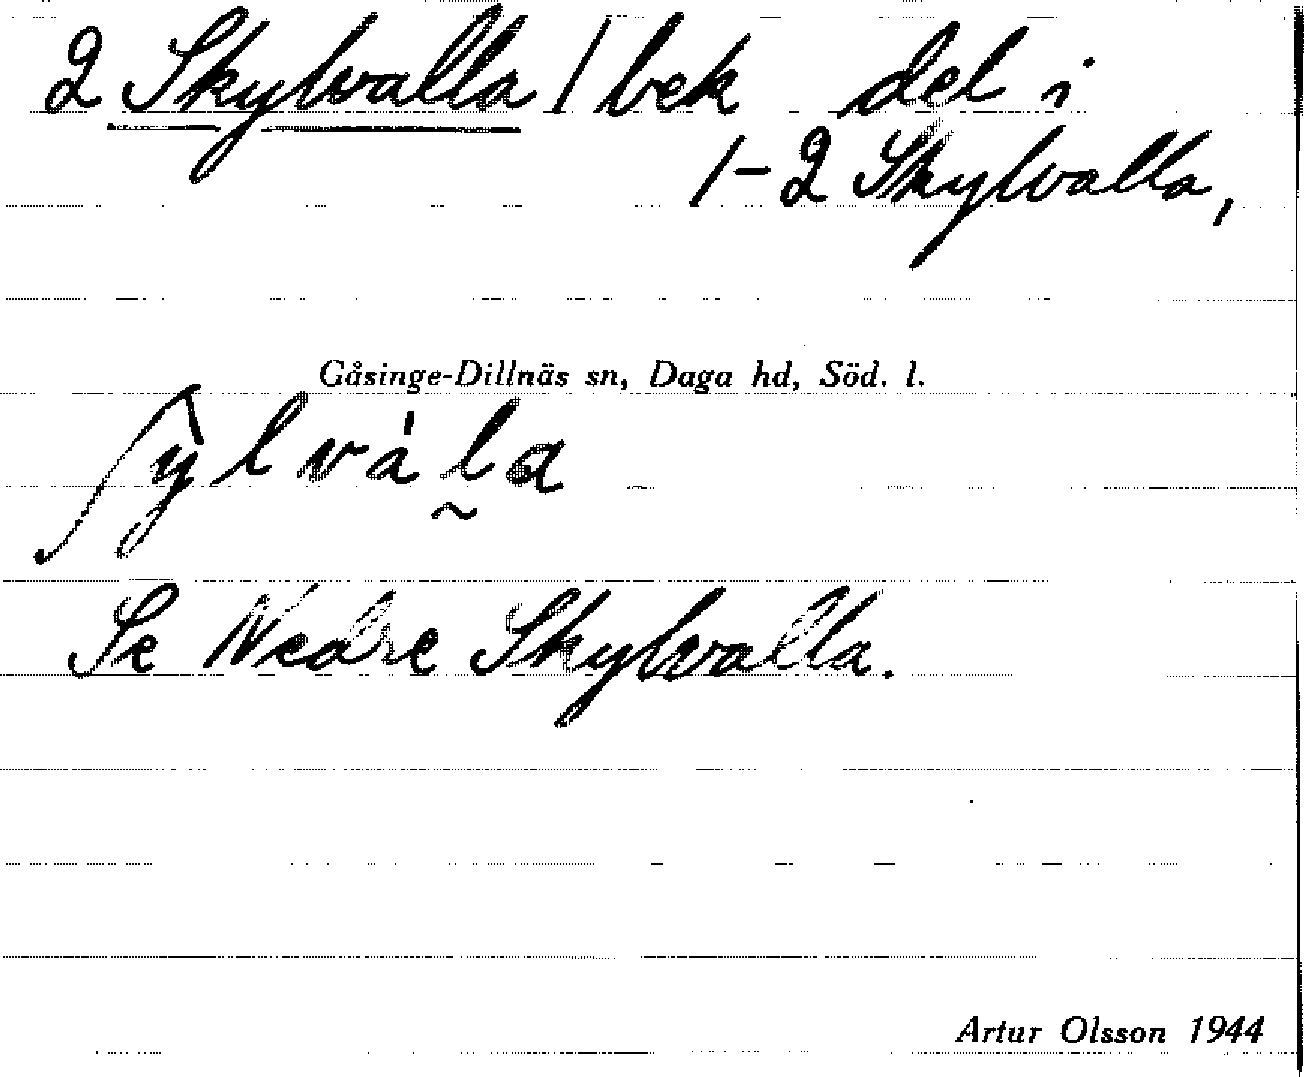 2 Skylvalla / bek del i
1-2 Skylvalla,
Gåsinge-Dillnäs sn, Daga hd, Söd. l.
ʃỳlvála
Se Nedre Skylvalla.
Artur Olsson 1944